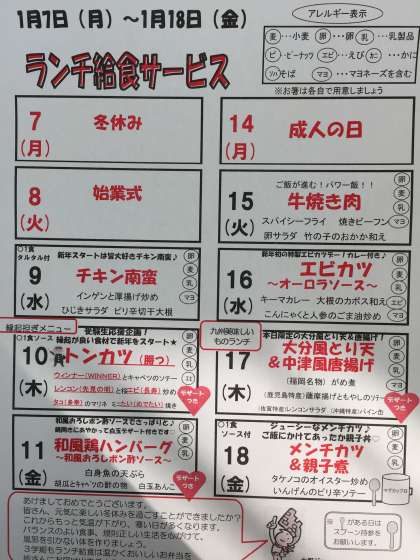 1月7日(月)～1月18日(金)
アレルギー表示
麦…小麦 卵…卵 乳…乳製品
ピ…ピーナッツ エビ…えび カニ…かに
ソバそば マヨ…マヨネーズを含む
ランチ給食サービス
※お箸は各自で用意しましょう
7
(月)
冬休み
14
(月)
成人の日
8
(火)
始業式
15
(火)
ご飯が進む!パワー飯!!
牛焼き肉
スパイシーフライ 焼きビーフン
卵サラダ 竹の子のおかか和え
卵
麦
乳
マヨ
○1食
タルタル付
新年スタートは皆大好きチキン南蛮♪
9
(水)
チキン南蛮
インゲンと厚揚げ炒め
ひじきサラダ ピリ辛切干大根
卵
麦
乳
マヨ
16
(水)
新年初の特製エビカツデー!カレー付き♪
エビカツ
～オーロラソース～
キーマカレー 大根のカポス和え
こんにゃくと人参のごま油炒め
縁起担ぎメニュー
○1食ソース付
受験生応援企画!
縁起が良い食材で新年をスタート★
10
(木)
トンカツ(勝つ)
ウィンナー(WINNER)とキャベツのソテー
レンコン(先見の明)と桜エビ(長寿)炒め
タコ(多幸)のマリネ ミニたい(めでたい)焼き
デザートつき
九州美味しいものランチ
本日限定の大分とり天&唐揚げ!
17
(木)
大分風とり天
&中津風唐揚げ
(福岡名物)がめ煮
(鹿児島特産)薩摩揚げともやしのソテー
(佐賀特産)レンコンサラダ (沖縄特産)パイン缶
デザートつき
和風おろしポン酢ソースでさっぱりと♪
11
(金)
和風鶏ハンバーグ
～和風おろしポン酢ソース～
白身魚の天ぷら
胡瓜とキャベツの酢の物 白玉あんこ
デザートつき
○1食
ソース付
ジューシーなメンチカツ♪
ご飯にかけてあったか親子丼♡
18
(金)
メンチカツ
&親子煮
タケノコのオイスター炒め
いんげんのピリ辛ソテー
マグカップ○
あけましておめでとうございます。
皆さん、元気に楽しい冬休みを過ごすことができましたか?
これからもっと気温が下がり、寒い日が多くなります。
バランスのよい食事、規則正しい生活を心がけて、
風邪を引かないようにしましょう。
3学期もランチ給食は温かくおいしいお弁当を
※がある日は
スプーン持参を
お願いします。